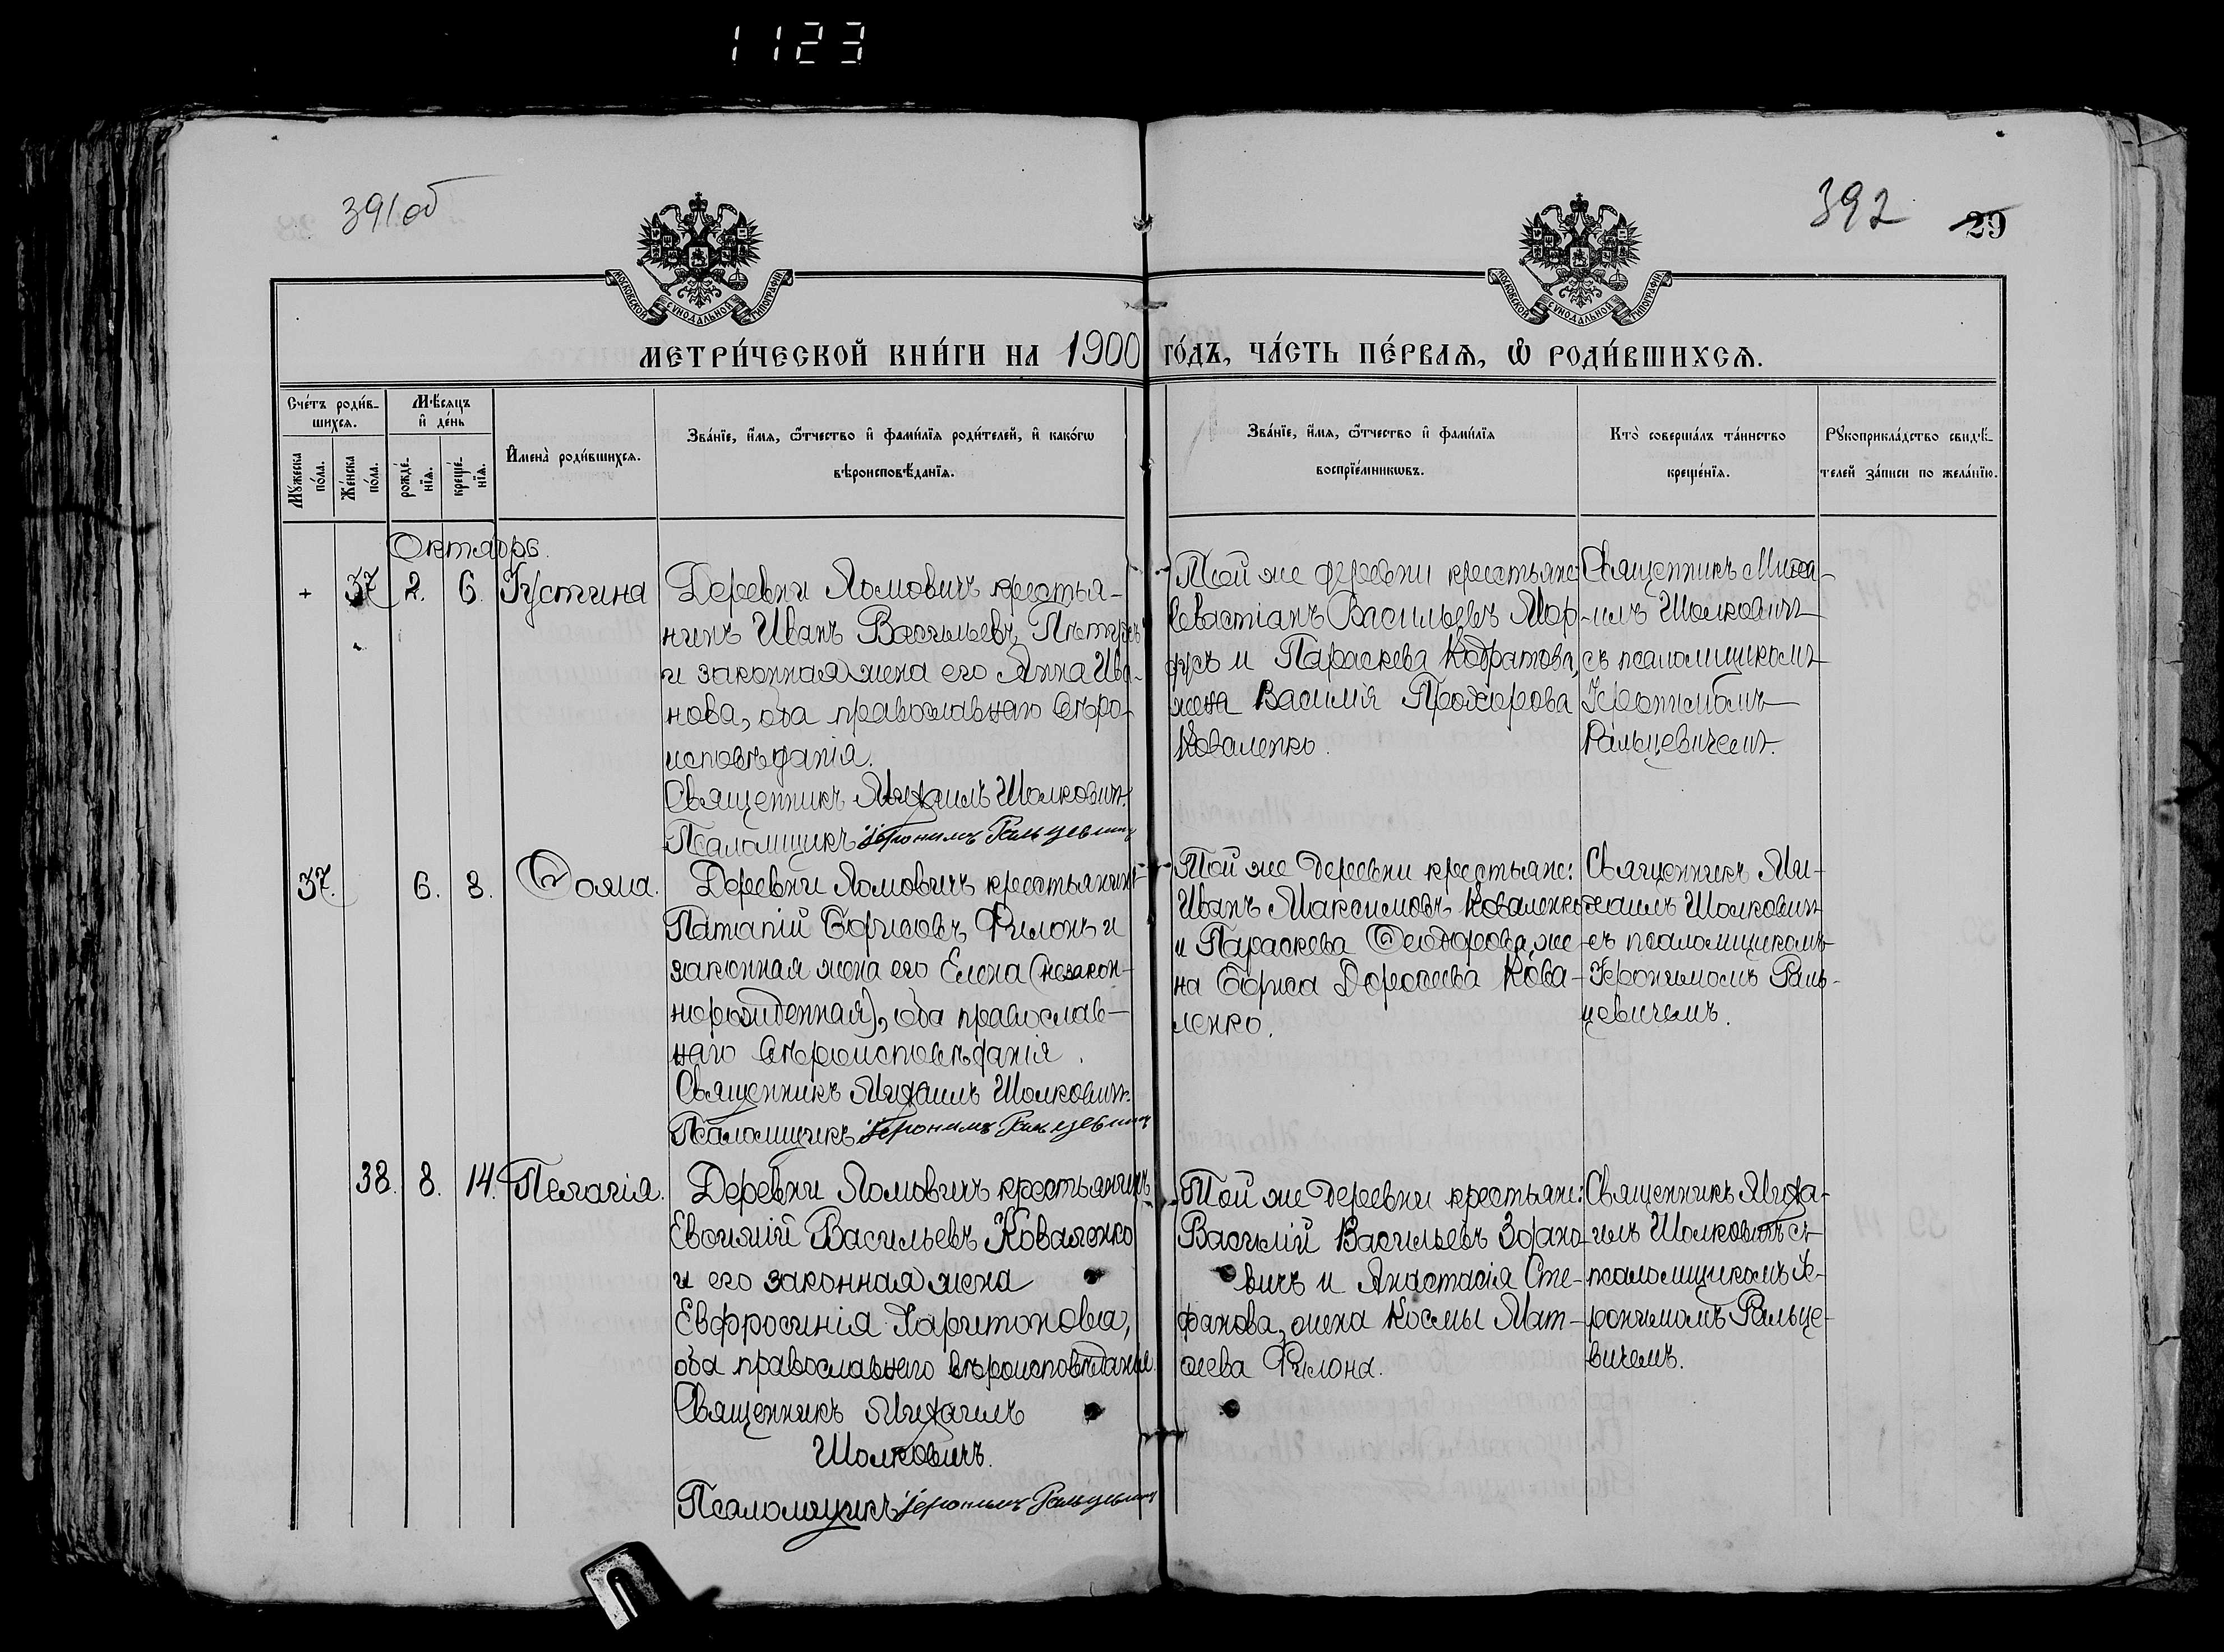 1123
391 об
392 29
МОСКОВСКОЙ СѴНОДАЛЬНОЙ ТИПОГРАФІИ
МОСКОВСКОЙ СѴНОДАЛЬНОЙ ТИПОГРАФІИ
МЕТРИ́ЧЕСКОЙ КНИ́ГИ НА 1900 ГО́ДЪ, ЧА́СТЬ ПЕ́РВАѦ, Ѡ҆ РОДИ́ВШИХСѦ.
Сче́тъ роди́в-
шихсѧ.
Мꙋ́жеска по́ла.
Же́нска по́ла.
Мѣ́сѧцъ
и҆ де́нь
рожде́-
нїѧ.
креще́-
нїѧ.
И҆мена̀ роди́вшихсѧ.
Зва́нїе, и҆́мѧ, ѻ҆́тчество и҆ фами́лїѧ роди́телей, и҆ како́гѡ
вѣроисповѣ́данїѧ.
Зва́нїе, и҆́мѧ, ѻ҆́тчество и҆ фами́лїѧ
воспрїе́мникѡвъ.
Кто̀ соверша́лъ та́инство
креще́нїѧ.
Рꙋкоприкла́дство свидѣ́-
телей за́писи по жела́нїю.
Октябрь.
+ 37 2. 6. Іустина
Деревни Ломовичъ крестья-
нинъ Иванъ Васильевъ
и законная жена его Анна Ива-
нова, оба православнаго вѣро-
исповѣданія.
Священникъ Михаилъ Шолковичъ.
Псаломщикъ Іеронимъ Ральцевичъ
Той же деревни крестьяне:
Севастіанъ Васильевъ Мор-
дусь и Параскева Кодратова,
жена Василія Прохорова
Коваленко.
Священникъ Миха-
илъ Шолковичъ
съ псаломщикомъ
Іеронимомъ
Ральцевичемъ.
37. 6. 8. Ѳома.
Деревни Ломовичъ крестьянинъ
Патапій Борисовъ Филонъ и
законная жена его Елена (незакон-
норожденная), оба православ-
наго вѣроисповѣданія.
Священникъ Михаилъ Шолковичъ.
Псаломщикъ Іеронимъ Ральцевичъ
Той же деревни крестьяне:
Иванъ Максимовъ Коваленко
и Параскева Ѳеодорова, же-
на Бориса Дороѳеева Кова-
ленко.
Священникъ Ми-
хаилъ Шолковичъ
съ псаломщикомъ
Іеронимомъ Раль-
цевичемъ.
38. 8. 14. Пелагія.
Деревни Ломовичъ крестьянинъ
Евѳимій Васильевъ Коваленко
и его законная жена
Евфросинія Харитонова,
оба православнаго вѣроисповѣданія.
Священникъ Михаилъ
Шолковичъ.
Псаломщикъ Іеронимъ Ральцевичъ
Той же деревни крестьяне:
Василій Васильевъ Здано-
вичъ и Анастасія Сте-
фанова, жена Космы Мат-
ѳеева Филона.
Священникъ Миха-
илъ Шолковичъ съ
псаломщикомъ Іе-
ронимомъ Ральце-
вичемъ.